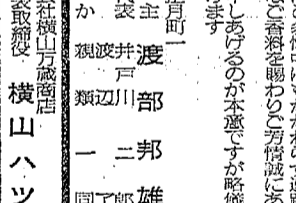 ご香料を賜わりご芳情誠にあ
しあげるのが本意ですが略儀
ます
月町一
主 渡部邦雄
表 井戸川二郎
渡辺
か 親類一同
社横山万蔵商店
表取締役 横山ハツ